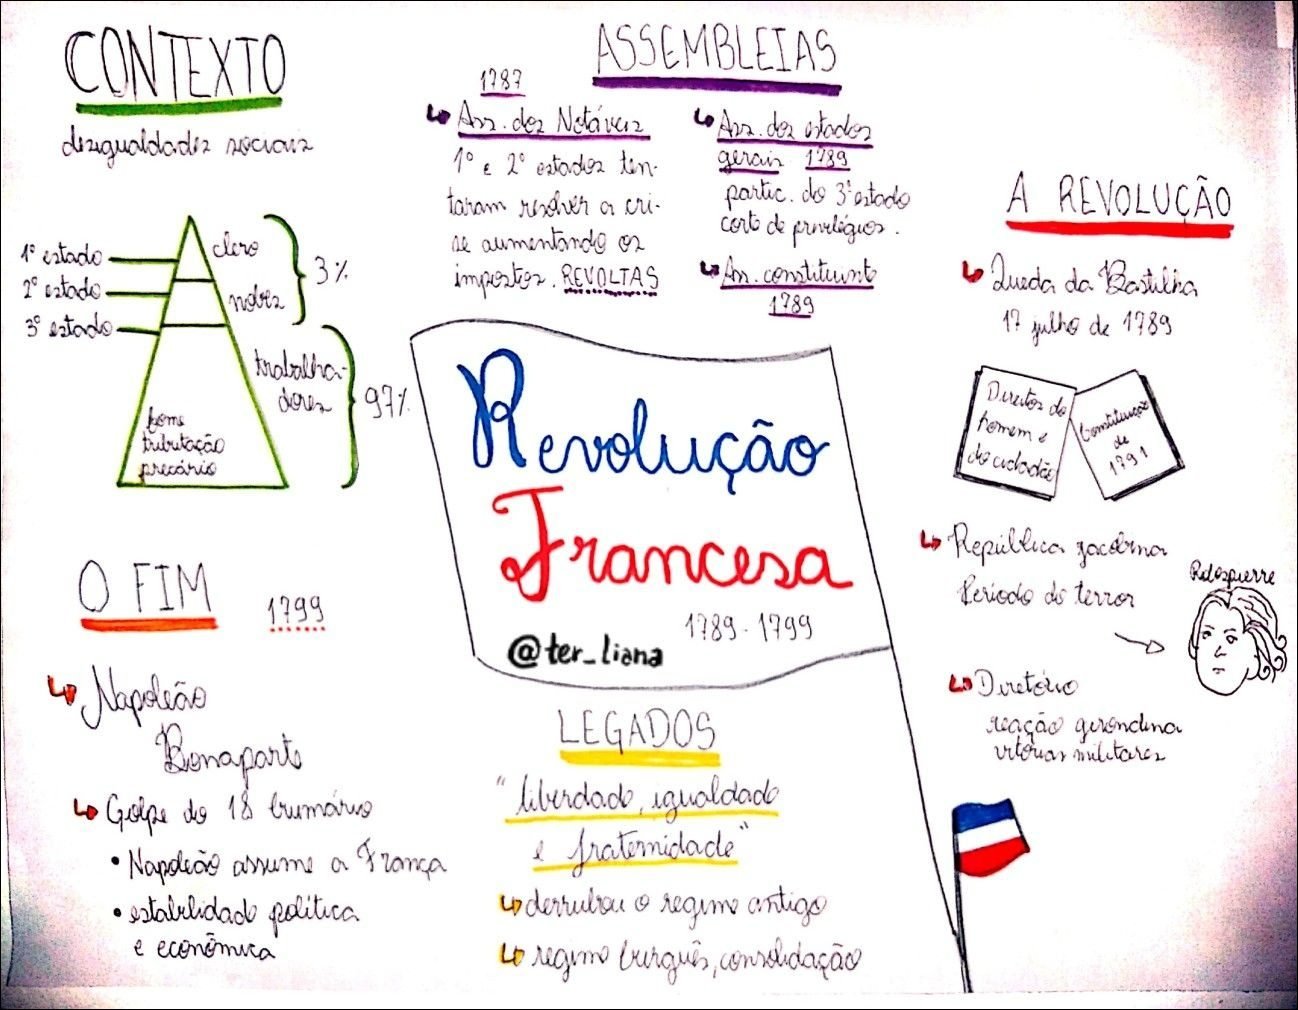 CONTEXTO
desigualdades sociais
1º estado
2º estado
3º estado
clero
nobres
3%
trabalha-
dores
97%
fome
tributação
precário
ASSEMBLEIAS
1787
Ass. dos Notáveis
1º e 2º estados ten-
taram resolver a cri-
se aumentando os
impostos. REVOLTAS
Ass. dos estados
gerais 1789
partic. do 3º estado
corte de privilégios.
Ass. constituinte
1789
A REVOLUÇÃO
Queda da Bastilha
17 julho de 1789
Direitos do
homem e
do cidadão
Constituição
de
1791
República jacobina
Período do terror
Robespierre
Diretório
reação girondina
vitórias militares
Revolução
Francesa
1789-1799
@ter_liana
O FIM
1799
Napoleão
Bonaparte
Golpe do 18 brumário
• Napoleão assume a França
• estabilidade política
e econômica
LEGADOS
"liberdade, igualdade
e fraternidade"
derrubou o regime antigo
regime burguês, consolidação